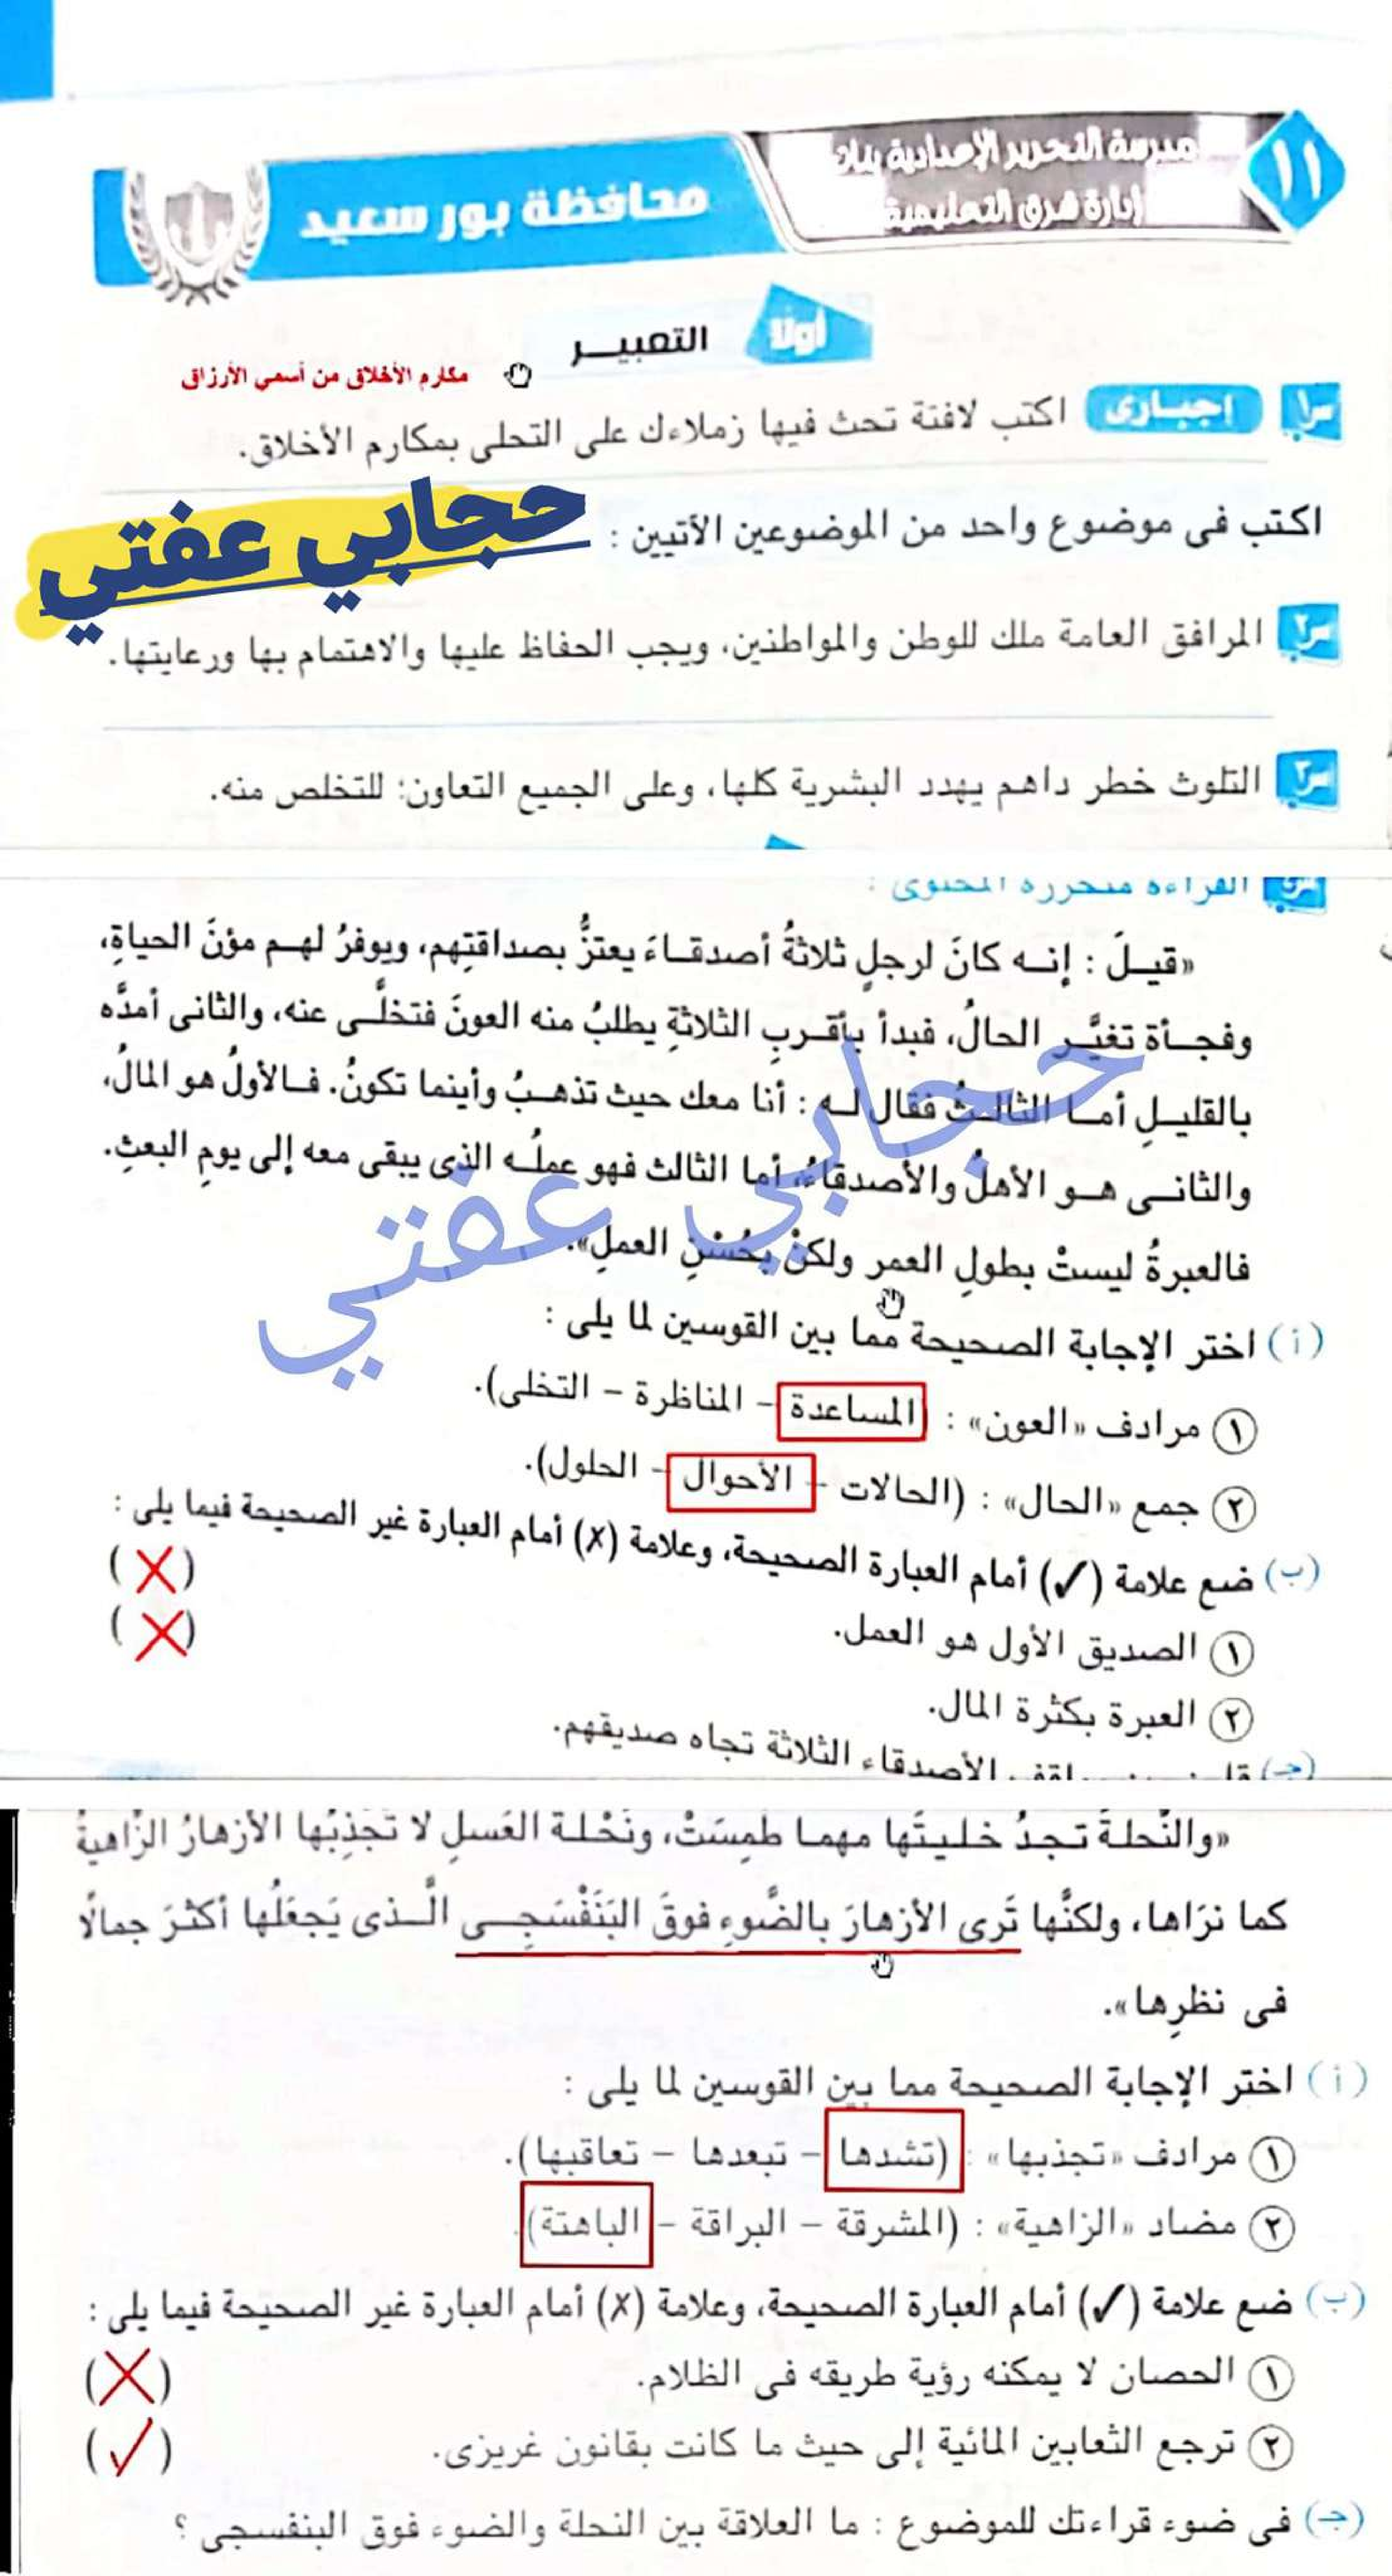 ١١
مدرسة التحرير الإعدادية بنات
إدارة شرق التعليمية
محافظة بور سعيد
أولًا
التعبيـــر
مكارم الأخلاق من أسمي الأرزاق
س١ إجبـارى اكتب لافتة تحث فيها زملاءك على التحلى بمكارم الأخلاق.
حجابي عفتي
اكتب فى موضوع واحد من الموضوعين الآتيين :
س٢ المرافق العامة ملك للوطن والمواطنين، ويجب الحفاظ عليها والاهتمام بها ورعايتها.
س٣ التلوث خطر داهم يهدد البشرية كلها، وعلى الجميع التعاون: للتخلص منه.
القراءة متحررة المحتوى :
«قيـلَ : إنـه كانَ لرجلٍ ثلاثةُ أصدقـاءَ يعتزُّ بصداقتِهم، ويوفرُ لهـم مؤنَ الحياةِ،
وفجـأة تغيَّـر الحالُ، فبدأ بأقـربِ الثلاثةِ يطلبُ منه العونَ فتخلَّـى عنه، والثانى أمدَّه
بالقليـلِ أمـا الثالـثُ فقال لـه : أنا معك حيث تذهـبُ وأينما تكونُ. فـالأولُ هو المالُ،
والثانـى هـو الأهلُ والأصدقاءُ، أما الثالث فهو عملُـه الذى يبقى معه إلى يومِ البعثِ.
فالعبرةُ ليستْ بطولِ العمر ولكنْ بحُسْنِ العملِ».
حجابي عفتي
(أ) اختر الإجابة الصحيحة مما بين القوسين لما يلى :
١ مرادف «العون» : (المساعدة – المناظرة – التخلى).
٢ جمع «الحال» : (الحالات – الأحوال – الحلول).
(ب) ضع علامة (✓) أمام العبارة الصحيحة، وعلامة (x) أمام العبارة غير الصحيحة فيما يلى :
١ الصديق الأول هو العمل. (X)
٢ العبرة بكثرة المال. (X)
(جـ) الأصدقاء الثلاثة تجاه صديقهم.
«والنَّحلـةَ تـجـدُ خـليـتَها مهمـا طُمِسَتْ، ونَحْلـة العَسلِ لا تَجذِبُها الأزهـارُ الزَّاهيةُ
كما نرَاها، ولكنَّها تَرى الأزهـارَ بالضَّوءِ فوقَ البَنَفْسَجِـى الَّـذى يَجعَلُها أكثـرَ جمالًا
فى نظرِها».
(أ) اختر الإجابة الصحيحة مما بين القوسين لما يلى :
١ مرادف «تجذبها» : (تشدها – تبعدها – تعاقبها).
٢ مضاد «الزاهية» : (المشرقة – البراقة – الباهتة).
(ب) ضع علامة (✓) أمام العبارة الصحيحة، وعلامة (x) أمام العبارة غير الصحيحة فيما يلى :
١ الحصان لا يمكنه رؤية طريقه فى الظلام. (X)
٢ ترجع الثعابين المائية إلى حيث ما كانت بقانون غريزى. (✓)
(جـ) فى ضوء قراءتك للموضوع : ما العلاقة بين النحلة والضوء فوق البنفسجى ؟